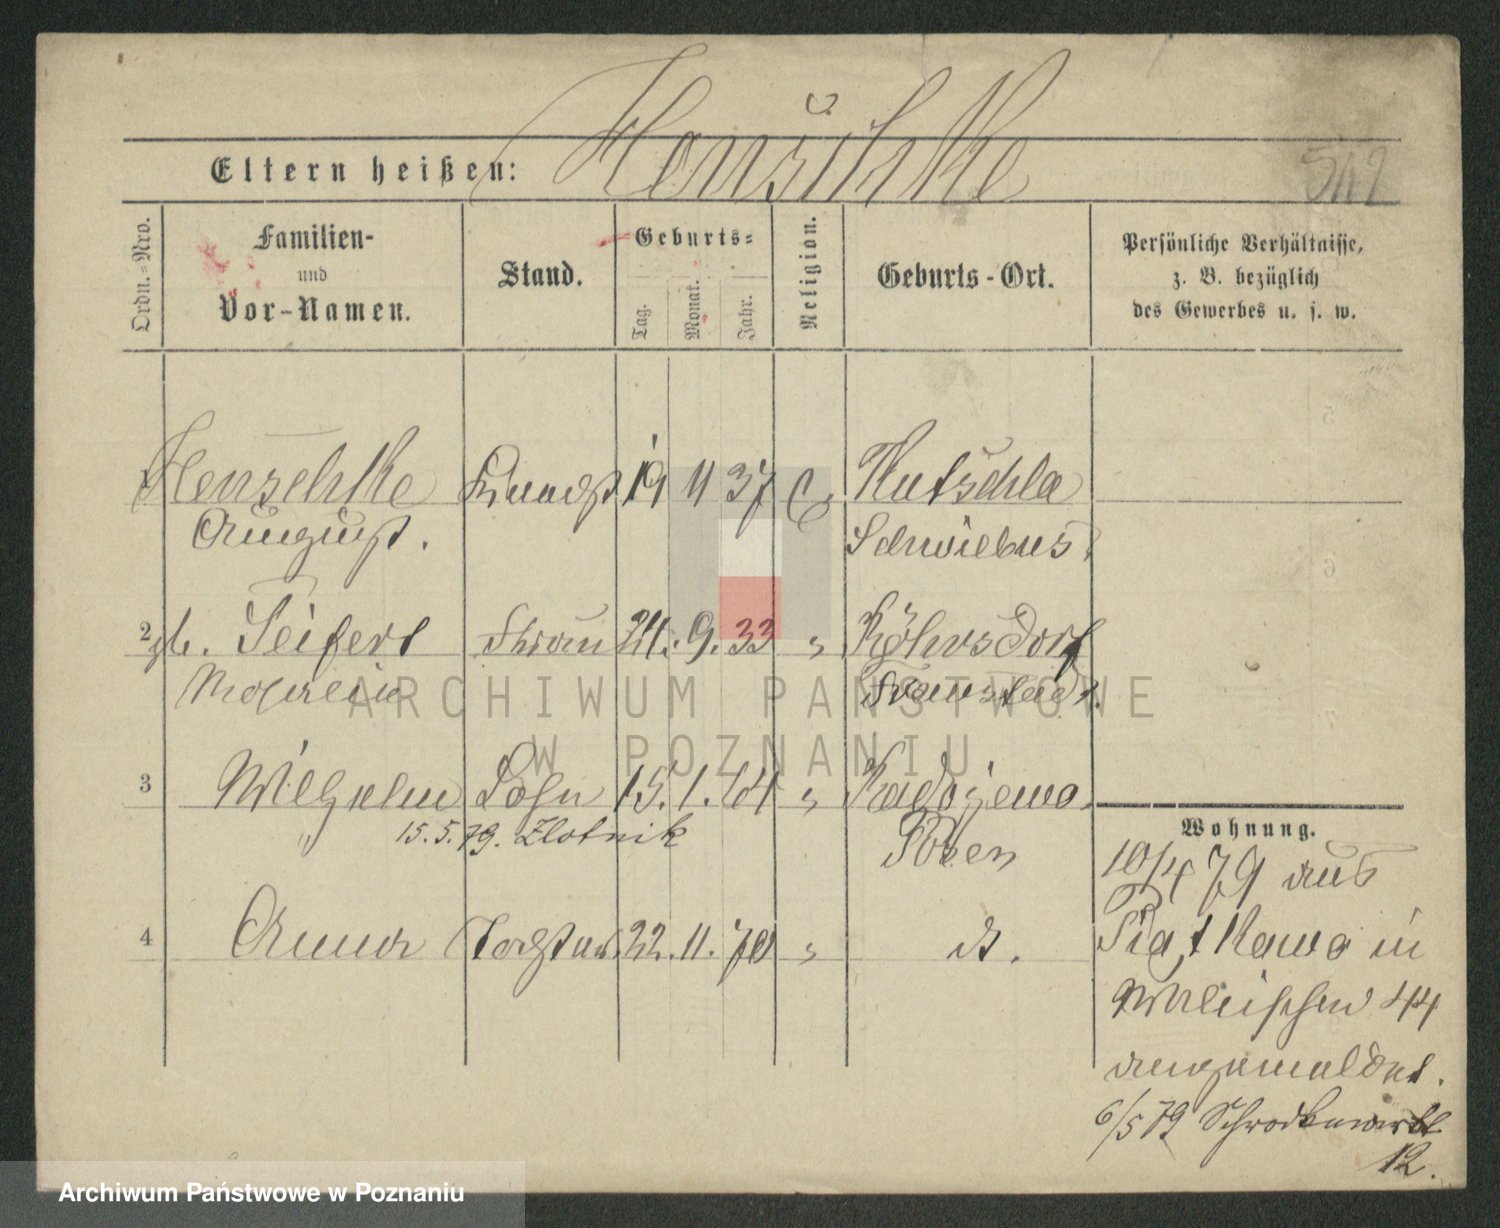 Henschke
Eltern heißen:
512
Ordn.=Nro.
Familien-
und
Vor-Namen.
Stand.
Geburts=
Tag.
Monat.
Jahr.
Religion.
Geburts-Ort.
Persönliche Verhältnisse,
z. B. bezüglich
des Gewerbes u. s. w.
Henschke Knecht 19 11 37 Kutschla
August. Schwiebus
2 gb. Seifert Frau 24. 9. 33 " Röhrsdorf
Fraustadt.
3 Wilhelm Sohn 15. 1. 64 " Radojewo
" 15. 5. 79. Zlotnik Posen
4 Anna Tochter 22. 11. 70 " dt.
Wohnung.
10/4 79 aus
Piątkowo in
Wallischei 44
angemeldet.
6/5 79 Schrodkamarkt
12.
ARCHIWUM PAŃSTWOWE
W POZNANIU
Archiwum Państwowe w Poznaniu